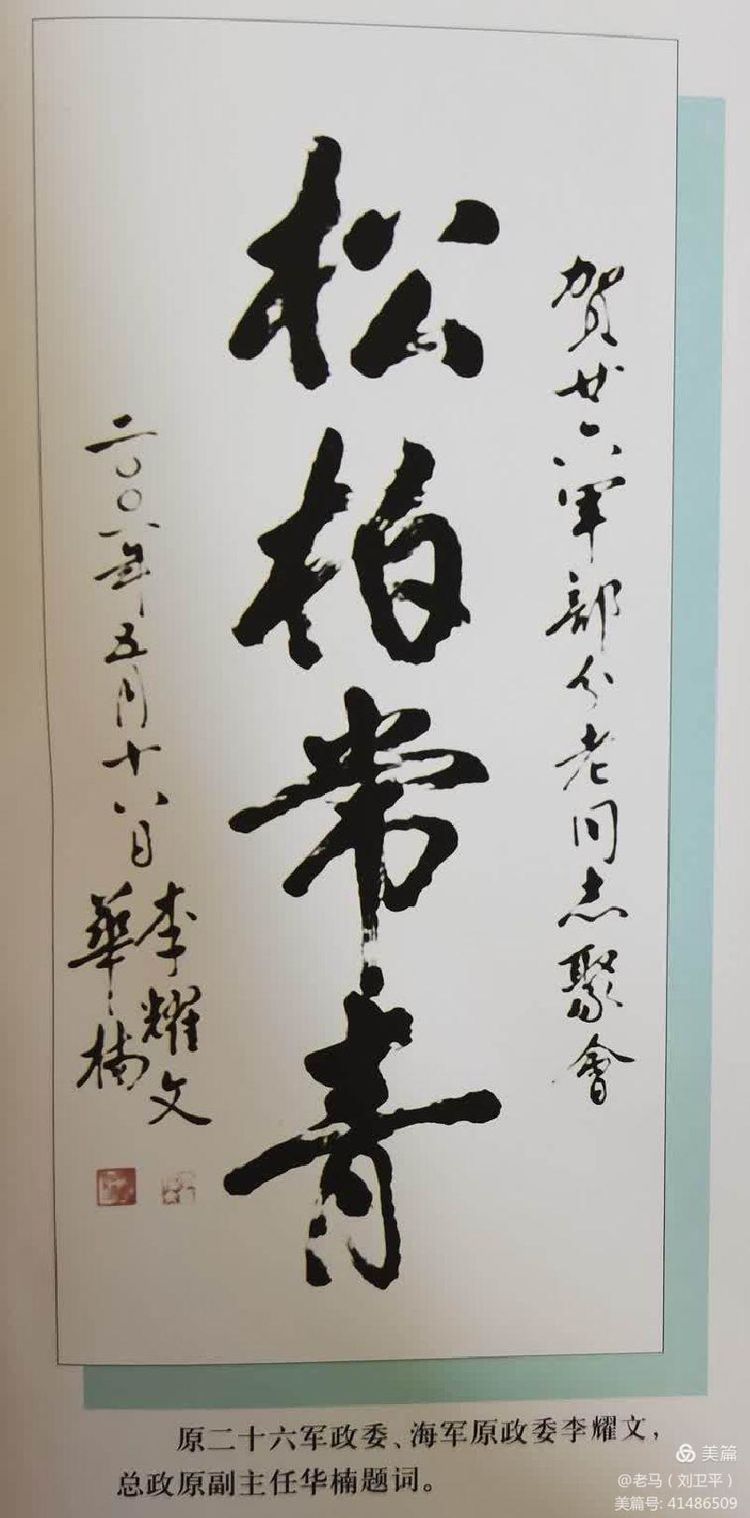 贺廿六军部份老同志聚會
松柏常青
二〇〇八年五月十八日
李耀文
華楠
原二十六军政委、海军原政委李耀文，
总政原副主任华楠题词。
美篇
@老马（刘卫平）
美篇号: 41486509